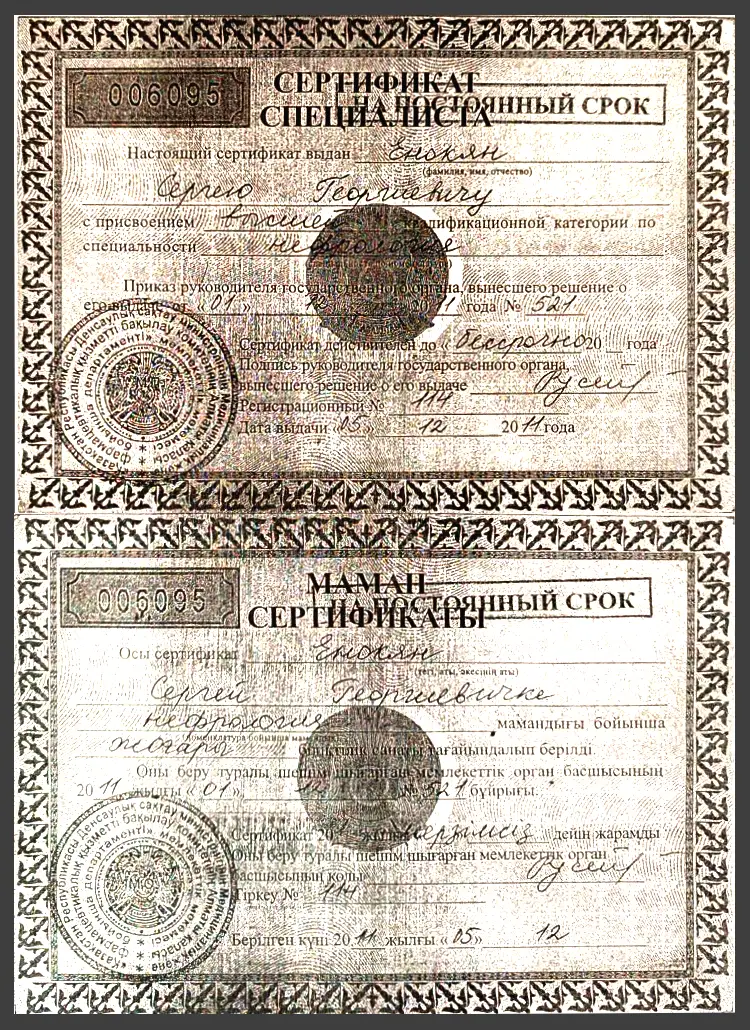 006095
СЕРТИФИКАТ
СПЕЦИАЛИСТА
НА ПОСТОЯННЫЙ СРОК
Настоящий сертификат выдан Енокян
(фамилия, имя, отчество)
Сергею Георгиевичу
с присвоением высшей квалификационной категории по
специальности нефрология
Приказ руководителя государственного органа, вынесшего решение о
его выдаче от «01» 12 2011 года № 521
Сертификат действителен до «бессрочно 20 года
Подпись руководителя государственного органа,
вынесшего решение о его выдаче
Регистрационный № 114
Дата выдачи «05» 12 2011 года
006095
МАМАН
СЕРТИФИКАТЫ
НА ПОСТОЯННЫЙ СРОК
Осы сертификат Енокян
(тегі, аты, әкесінің аты)
Сергей Георгиевичке
нефрология мамандығы бойынша
жоғары біліктілік санаты тағайындалып берілді.
Оны беру туралы шешім шығарған мемлекеттік орган басшысының
2011 жылғы «01» 12 № 521 бұйрығы.
Сертификат 20 жылғы мерзімсіз дейін жарамды
Оны беру туралы шешім шығарған мемлекеттік орган
басшысының қолы
Тіркеу № 114
Берілген күні 2011 жылғы «05» 12